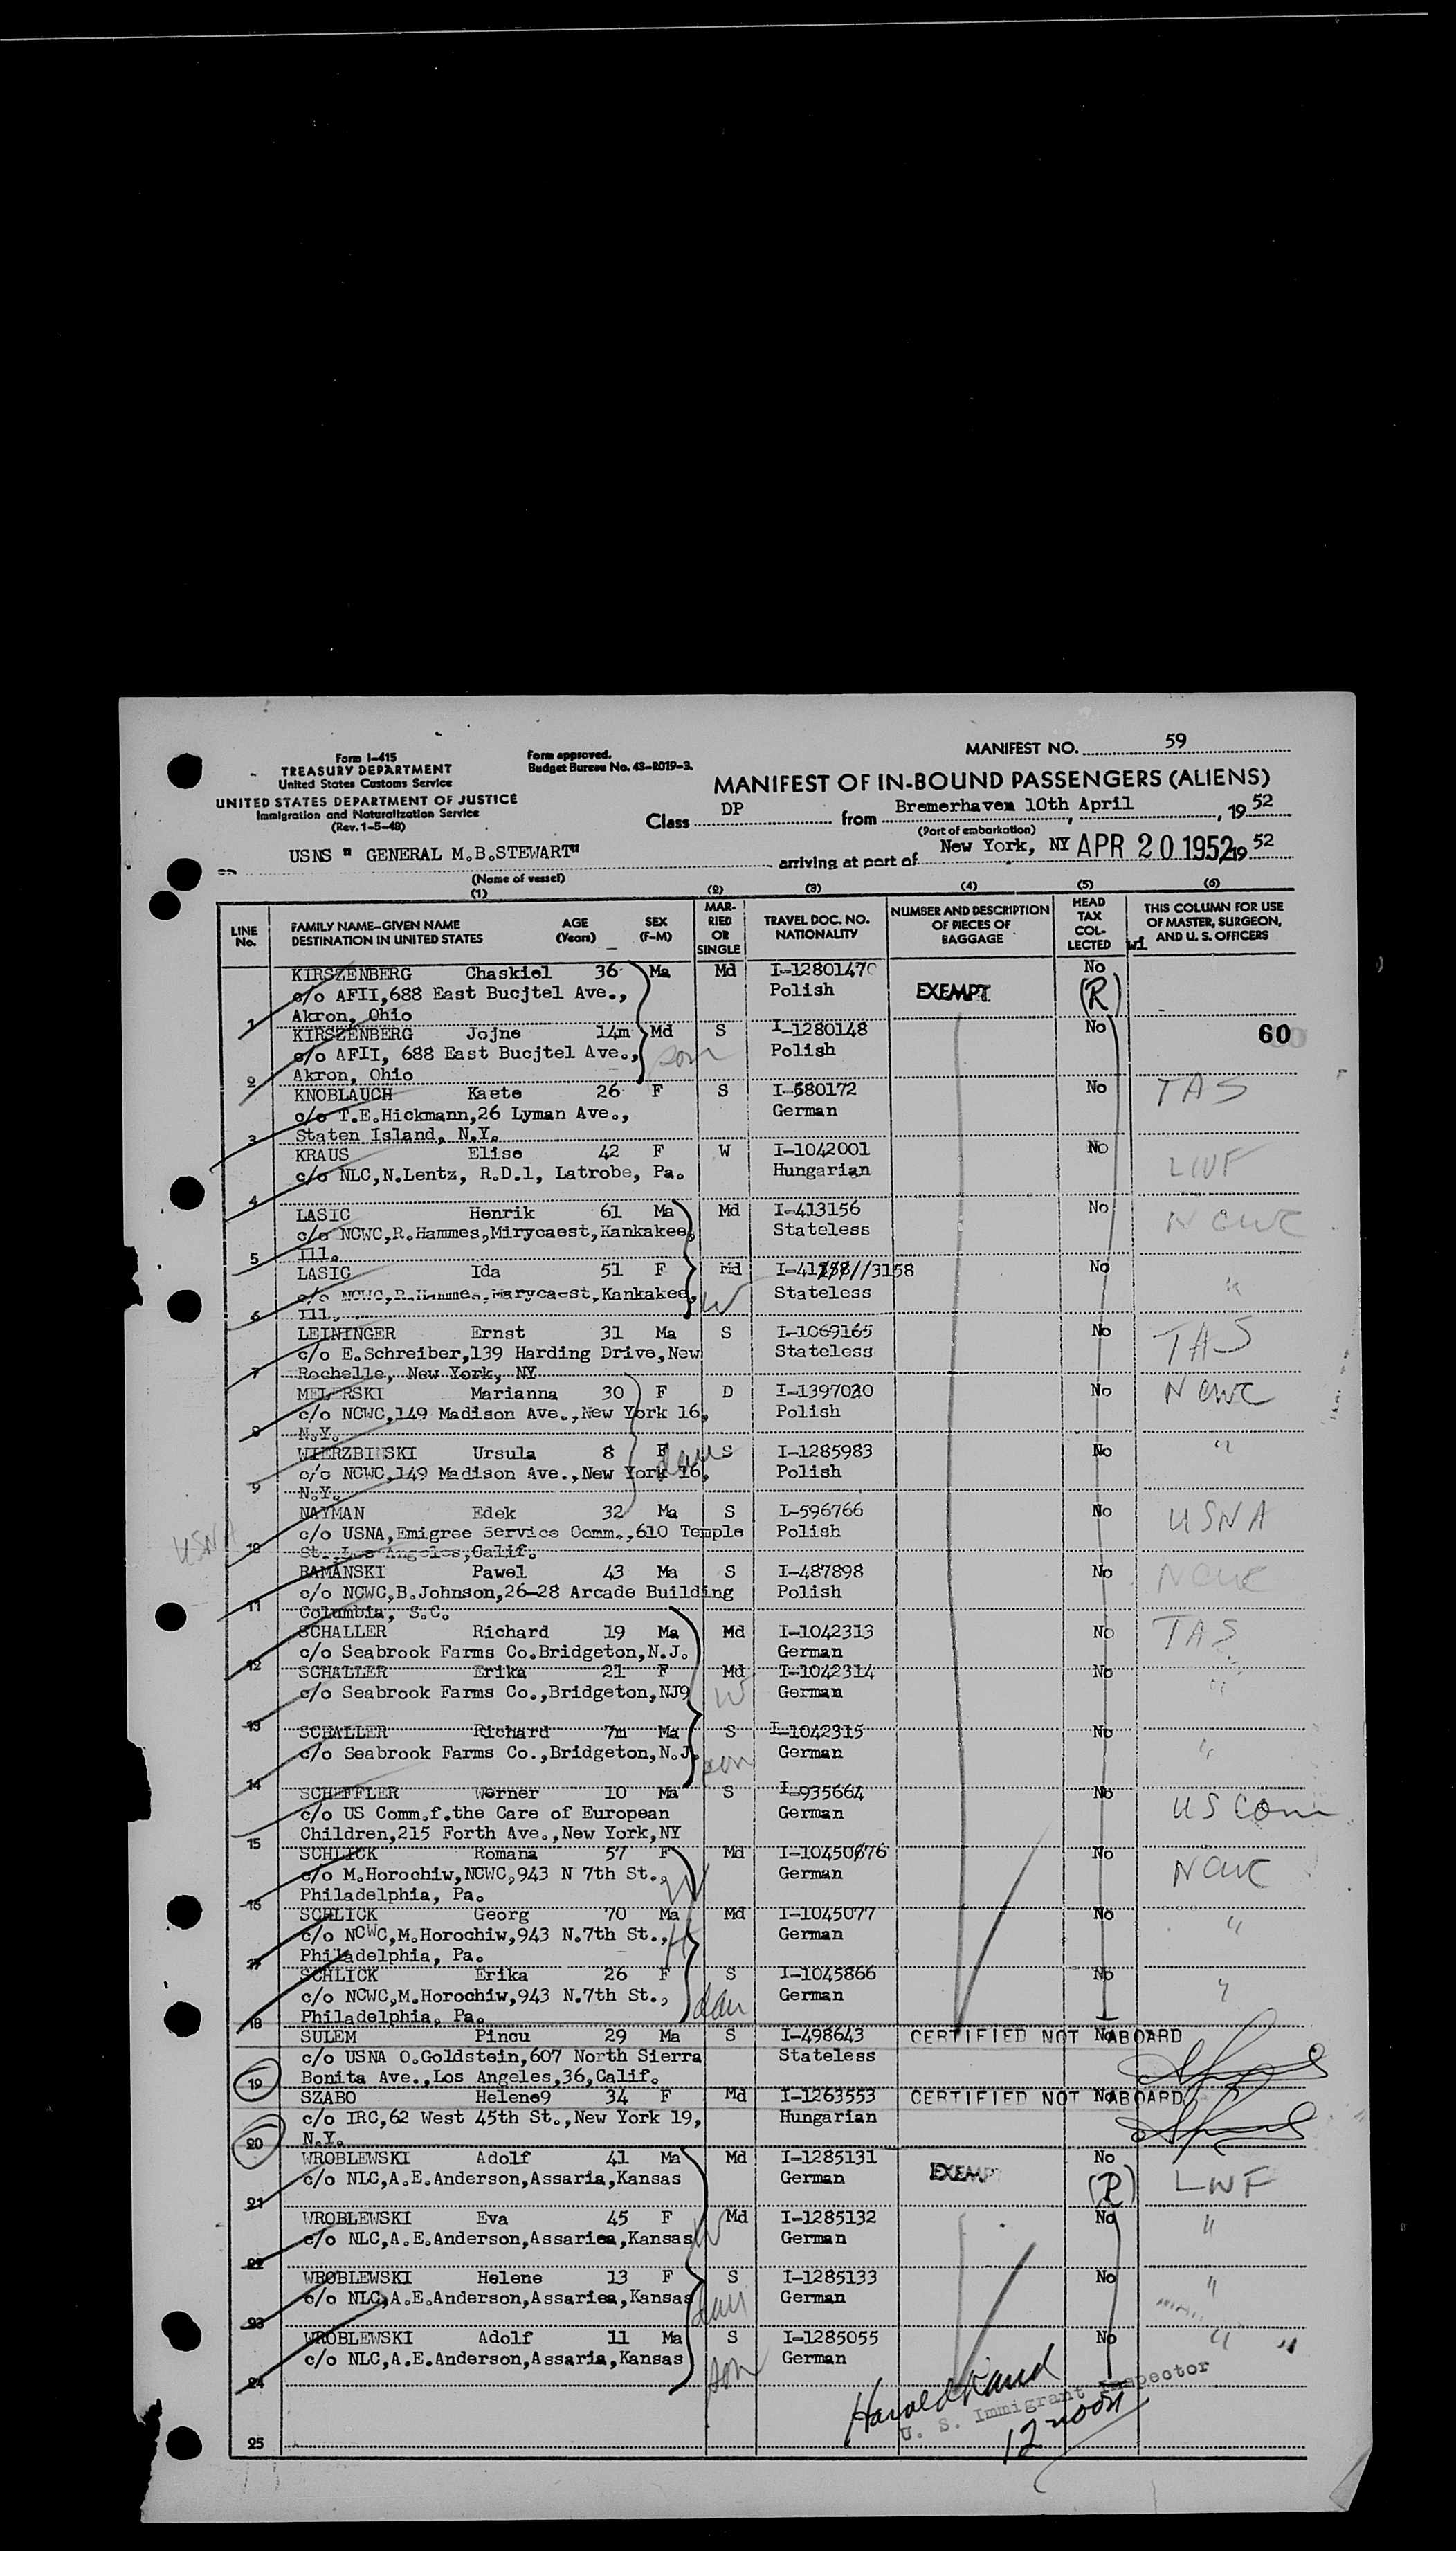 MANIFEST NO. 59
Form I-415
TREASURY DEPARTMENT
United States Customs Service
UNITED STATES DEPARTMENT OF JUSTICE
Immigration and Naturalization Service
(Rev. 1-5-48)
Form approved.
Budget Bureau No. 43-R019-3.
MANIFEST OF IN-BOUND PASSENGERS (ALIENS)
Class DP from Bremerhaven 10th April, 1952
(Port of embarkation)
USNS " GENERAL M.B.STEWART" arriving at port of New York, NY APR 20 1952 1952
(Name of vessel)
(1) (2) (3) (4) (5) (6)
LINE No. FAMILY NAME–GIVEN NAME DESTINATION IN UNITED STATES AGE (Years) SEX (F-M) MARRIED OR SINGLE TRAVEL DOC. NO. NATIONALITY NUMBER AND DESCRIPTION OF PIECES OF BAGGAGE HEAD TAX COLLECTED THIS COLUMN FOR USE OF MASTER, SURGEON, AND U. S. OFFICERS
KIRSZENBERG Chaskiel 36 Ma Md I-1280147 No
c/o AFII,688 East Bucjtel Ave., Polish EXEMPT (R)
1 Akron, Ohio
KIRSZENBERG Jojne 14m Md S I-1280148 No 60
c/o AFII, 688 East Bucjtel Ave., son Polish
2 Akron, Ohio
KNOBLAUCH Kaete 26 F S I-680172 No TAS
c/o T.E.Hickmann,26 Lyman Ave., German
3 Staten Island, N.Y.
KRAUS Elise 42 F W I-1042001 No LWF
c/o NLC,N.Lentz, R.D.1, Latrobe, Pa. Hungarian
4
LASIC Henrik 61 Ma Md I-413156 No NCWC
c/o NCWC,R.Hammes,Mirycaest,Kankakee, Stateless
5 Ill.
LASIC Ida 51 F Md I-41///3158 No "
c/o NCWC,R.Hammes,Marycaest,Kankakee, W Stateless
6 Ill.
LEININGER Ernst 31 Ma S I-1069165 No TAS
c/o E.Schreiber,139 Harding Drive,New Stateless
7 Rochelle, New York, NY
MELERSKI Marianna 30 F D I-1397020 No NCWC
c/o NCWC,149 Madison Ave.,New York 16, Polish
8 N.Y.
WIERZBINSKI Ursula 8 F dau S I-1285983 No "
c/o NCWC,149 Madison Ave.,New York 16, Polish
9 N.Y.
NAYMAN Edek 32 Ma S I-596766 No USNA
c/o USNA,Emigree Service Comm.,610 Temple Polish
USNA 10 St.,Los Angeles,Calif.
RAMANSKI Pawel 43 Ma S I-487898 No NCWC
c/o NCWC,B.Johnson,26-28 Arcade Building Polish
11 Columbia, S.C.
SCHALLER Richard 19 Ma Md I-1042313 No TAS
c/o Seabrook Farms Co.Bridgeton,N.J. German
12
SCHALLER Erika 21 F Md I-1042314 No "
c/o Seabrook Farms Co.,Bridgeton,NJ9 W German
13
SCHALLER Richard 7m Ma S I-1042315 No "
c/o Seabrook Farms Co.,Bridgeton,N.J. son German
14
SCHEFFLER Werner 10 Ma S I-935664 No US Com
c/o US Comm.f.the Care of European German
15 Children,215 Forth Ave.,New York,NY
SCHLICK Romana 57 F Md I-10450676 No NCWC
c/o M.Horochiw,NCWC,943 N 7th St., W German
16 Philadelphia, Pa.
SCHLICK Georg 70 Ma Md I-1045077 No "
c/o NCWC,M.Horochiw,943 N.7th St., H German
17 Philadelphia, Pa.
SCHLICK Erika 26 F S I-1045866 No "
c/o NCWC,M.Horochiw,943 N.7th St., dau German
18 Philadelphia, Pa.
SULEM Pincu 29 Ma S I-498643 CERTIFIED NOT ABOARD No
c/o USNA O.Goldstein,607 North Sierra Stateless
19 Bonita Ave.,Los Angeles,36,Calif.
SZABO Helene9 34 F Md I-1263553 CERTIFIED NOT ABOARD No
c/o IRC,62 West 45th St.,New York 19, Hungarian
20 N.Y.
WROBLEWSKI Adolf 41 Ma Md I-1285131 No
c/o NLC,A.E.Anderson,Assaria,Kansas German EXEMPT (R) LWF
21
WROBLEWSKI Eva 45 F Md I-1285132 No "
c/o NLC,A.E.Anderson,Assariea,Kansas W German
22
WROBLEWSKI Helene 13 F S I-1285133 No "
c/o NLC,A.E.Anderson,Assariea,Kansas dau German
23
WROBLEWSKI Adolf 11 Ma S I-1285055 No " "
c/o NLC,A.E.Anderson,Assaria,Kansas son German
24
U. S. Immigrant Inspector
12 noon
25